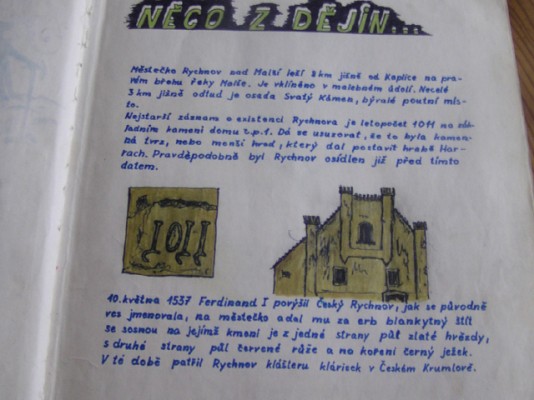 NĚCO Z DĚJIN...
Městečko Rychnov nad Malší leží 8 km jižně od Kaplice na pra-
vém břehu řeky Malše. Je vklíněno v malebném údolí. Necelé
3 km jižně odtud je osada Svatý Kámen, bývalé poutní mís-
to.
Nejstarší záznam o existenci Rychnova je letopočet 1011 na zák-
ladním kameni domu č.p.1. Dá se usuzovat, že to byla kamen-
ná tvrz, nebo menší hrad, který dal postavit hrabě Har-
rach. Pravděpodobně byl Rychnov osídlen již před tímto
datem.
1011
10. května 1537 Ferdinand I povýšil Český Rychnov, jak se původně
ves jmenovala, na městečko a dal mu za erb blankytný štít
se sosnou na jejímž kmeni je z jedné strany půt zlaté hvězdy,
s druhé strany půl červené růže a na kořeni černý ježek.
V té době patřil Rychnov klášteru klarisek v Českém Krumlově.